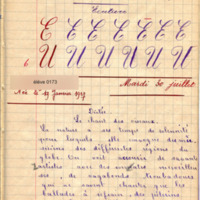 Écriture
E E E E E E E
U U U U U U U
élève 0173
Mardi 30 juillet
Né le 19 Janvier 1917
Dictée
Le chant des oiseaux.
La nature a ses temps de solennité
pour lesquels elle convoque des
musiciens des différentes régions du
globe. On voit accourir de savants
artistes avec des
de vagabonds troubadours
qui ne savent chanter que des
ballades à refrain, des pèlerins